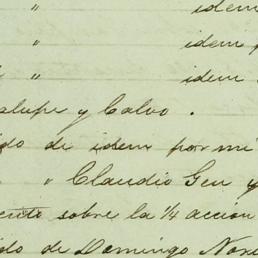 " idem
" idem
" idem
alupe y Calvo.
ido de idem por mi
" Claudio Gen y
ento sobre la ¼ accion
ido de Domingo Nori